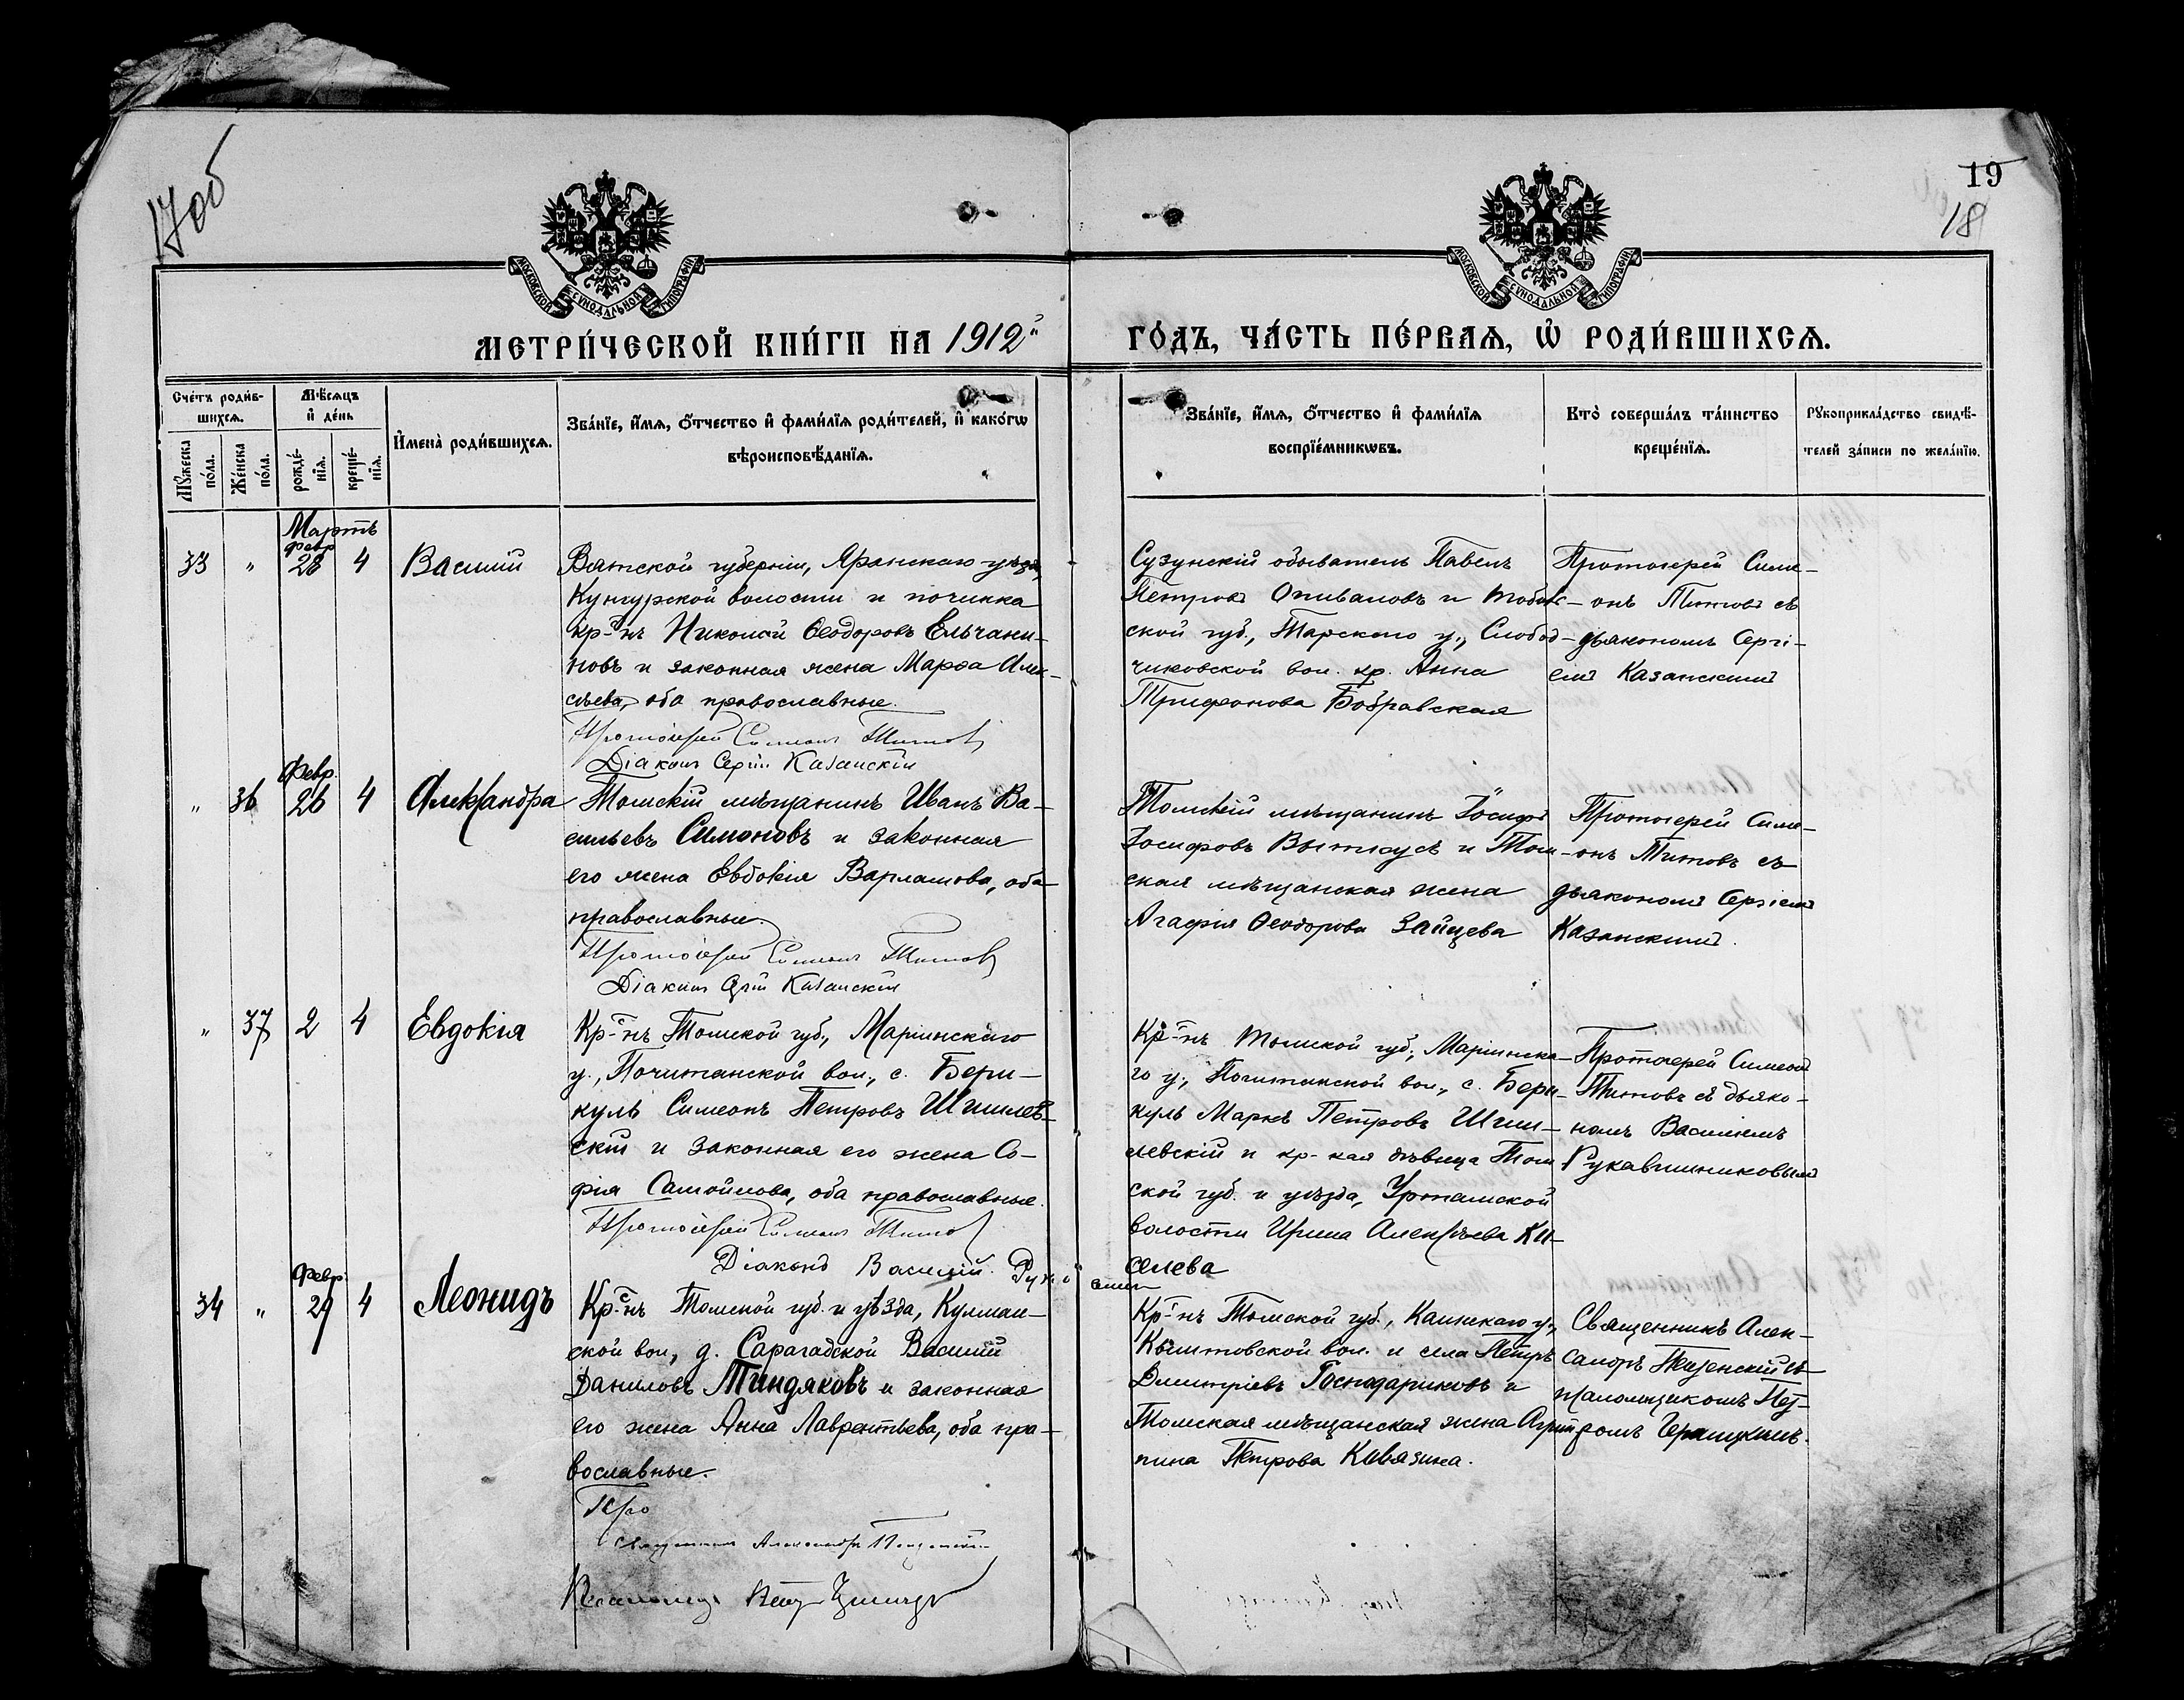 17 об
19
18
МОСКОВСКОЙ СѴНОДАЛЬНОЙ ТИПОГРАФІИ
МОСКОВСКОЙ СѴНОДАЛЬНОЙ ТИПОГРАФІИ
МЕТРИ́ЧЕСКОЙ КНИ́ГИ НА 1912й
ГО́ДЪ, ЧА́СТЬ ПЕ́РВАѦ, Ѡ҆ РОДИ́ВШИХСѦ.
Сче́тъ роди́в-
шихсѧ.
Мꙋ́жеска
по́ла.
Же́нска
по́ла.
Мѣ́сѧцъ
и҆ де́нь
рожде́-
нїѧ.
креще́-
нїѧ.
И҆мена̀ роди́вшихсѧ.
Зва́нїе, и҆́мѧ, ѻ҆́тчество и҆ фами́лїѧ роди́телей, и҆ како́гѡ
вѣроисповѣ́данїѧ.
Зва́нїе, и҆́мѧ, ѻ҆́тчество и҆ фами́лїѧ
воспрїе́мникѡвъ.
Кто̀ соверша́лъ та́инство
креще́нїѧ.
Рꙋкоприкла́дство свидѣ́-
телей за́писи по жела́нїю.
Мартъ
33 " февр 28 4 Василій
Вятской губерніи, Яранскаго уѣзда,
Кунгурской волости и починка
кр-нъ Николай Ѳеодоровъ Ельчани-
новъ и законная жена Марѳа Алек-
сѣева, оба православные.
Протоіерей Симеонъ Титовъ
Діаконъ Сергій Казанскій
Сузунскій обыватель Павелъ
Петровъ Опиваловъ и Тоболь-
ской губ., Тарскаго у., Слобод-
чиковской вол. кр. Анна
Трифонова Бобравская
Протоіерей Симе-
онъ Титовъ съ
дьякономъ Сергі-
емъ Казанскимъ
" 36 Февр. 26 4 Александра
Томскій мѣщанинъ Иванъ Ва-
сильевъ Симоновъ и законная
его жена Евдокія Варламова, оба
православные.
Протоіерей Симеонъ Титовъ
Діаконъ Сергій Казанскій
Томскій мѣщанинъ Іосифъ
Іосифовъ Выткусъ и Том-
ская мѣщанская жена
Агафія Ѳеодорова Зайцева
Протоіерей Симе-
онъ Титовъ съ
дьякономъ Сергіемъ
Казанскимъ.
" 37 2 4 Евдокія
Кр-нъ Томской губ., Маріинскаго
у., Почитанской вол., с. Бери-
куль Симеонъ Петровъ Шишлев-
скій и законная его жена Со-
фія Самойлова, оба православные.
Протоіерей Симеонъ Титовъ
Діаконъ Василій
Кр-нъ Томской губ., Маріинска-
го у., Почитанской вол., с. Бери-
куль Маркъ Петровъ Шиш-
левскій и кр-кая дѣвица Том-
ской губ. и уѣзда, Уртамской
волости Ирина Алексѣева Ки-
селева
Протоіерей Симеонъ
Титовъ съ дьяко-
номъ Василіемъ
Рукавишниковымъ
34 " Февр. 29 4 Леонидъ
Кр-нъ Томской губ. и уѣзда, Кулман-
ской вол., д. Сарагадской Василій
Даниловъ Тиндяковъ и законная
его жена Анна Лаврентьева, оба пра-
вославные.
Про
Священникъ Александръ
Псаломщ Петръ
Кр-нъ Томской губ., Каинскаго у.,
Кыштовской вол. и села Петръ
Дмитріевъ Господариковъ и
Томская мѣщанская жена Агрип-
пина Петрова Кивазина.
Священникъ Алек-
сандръ съ
псаломщикомъ Пет-
ромъ